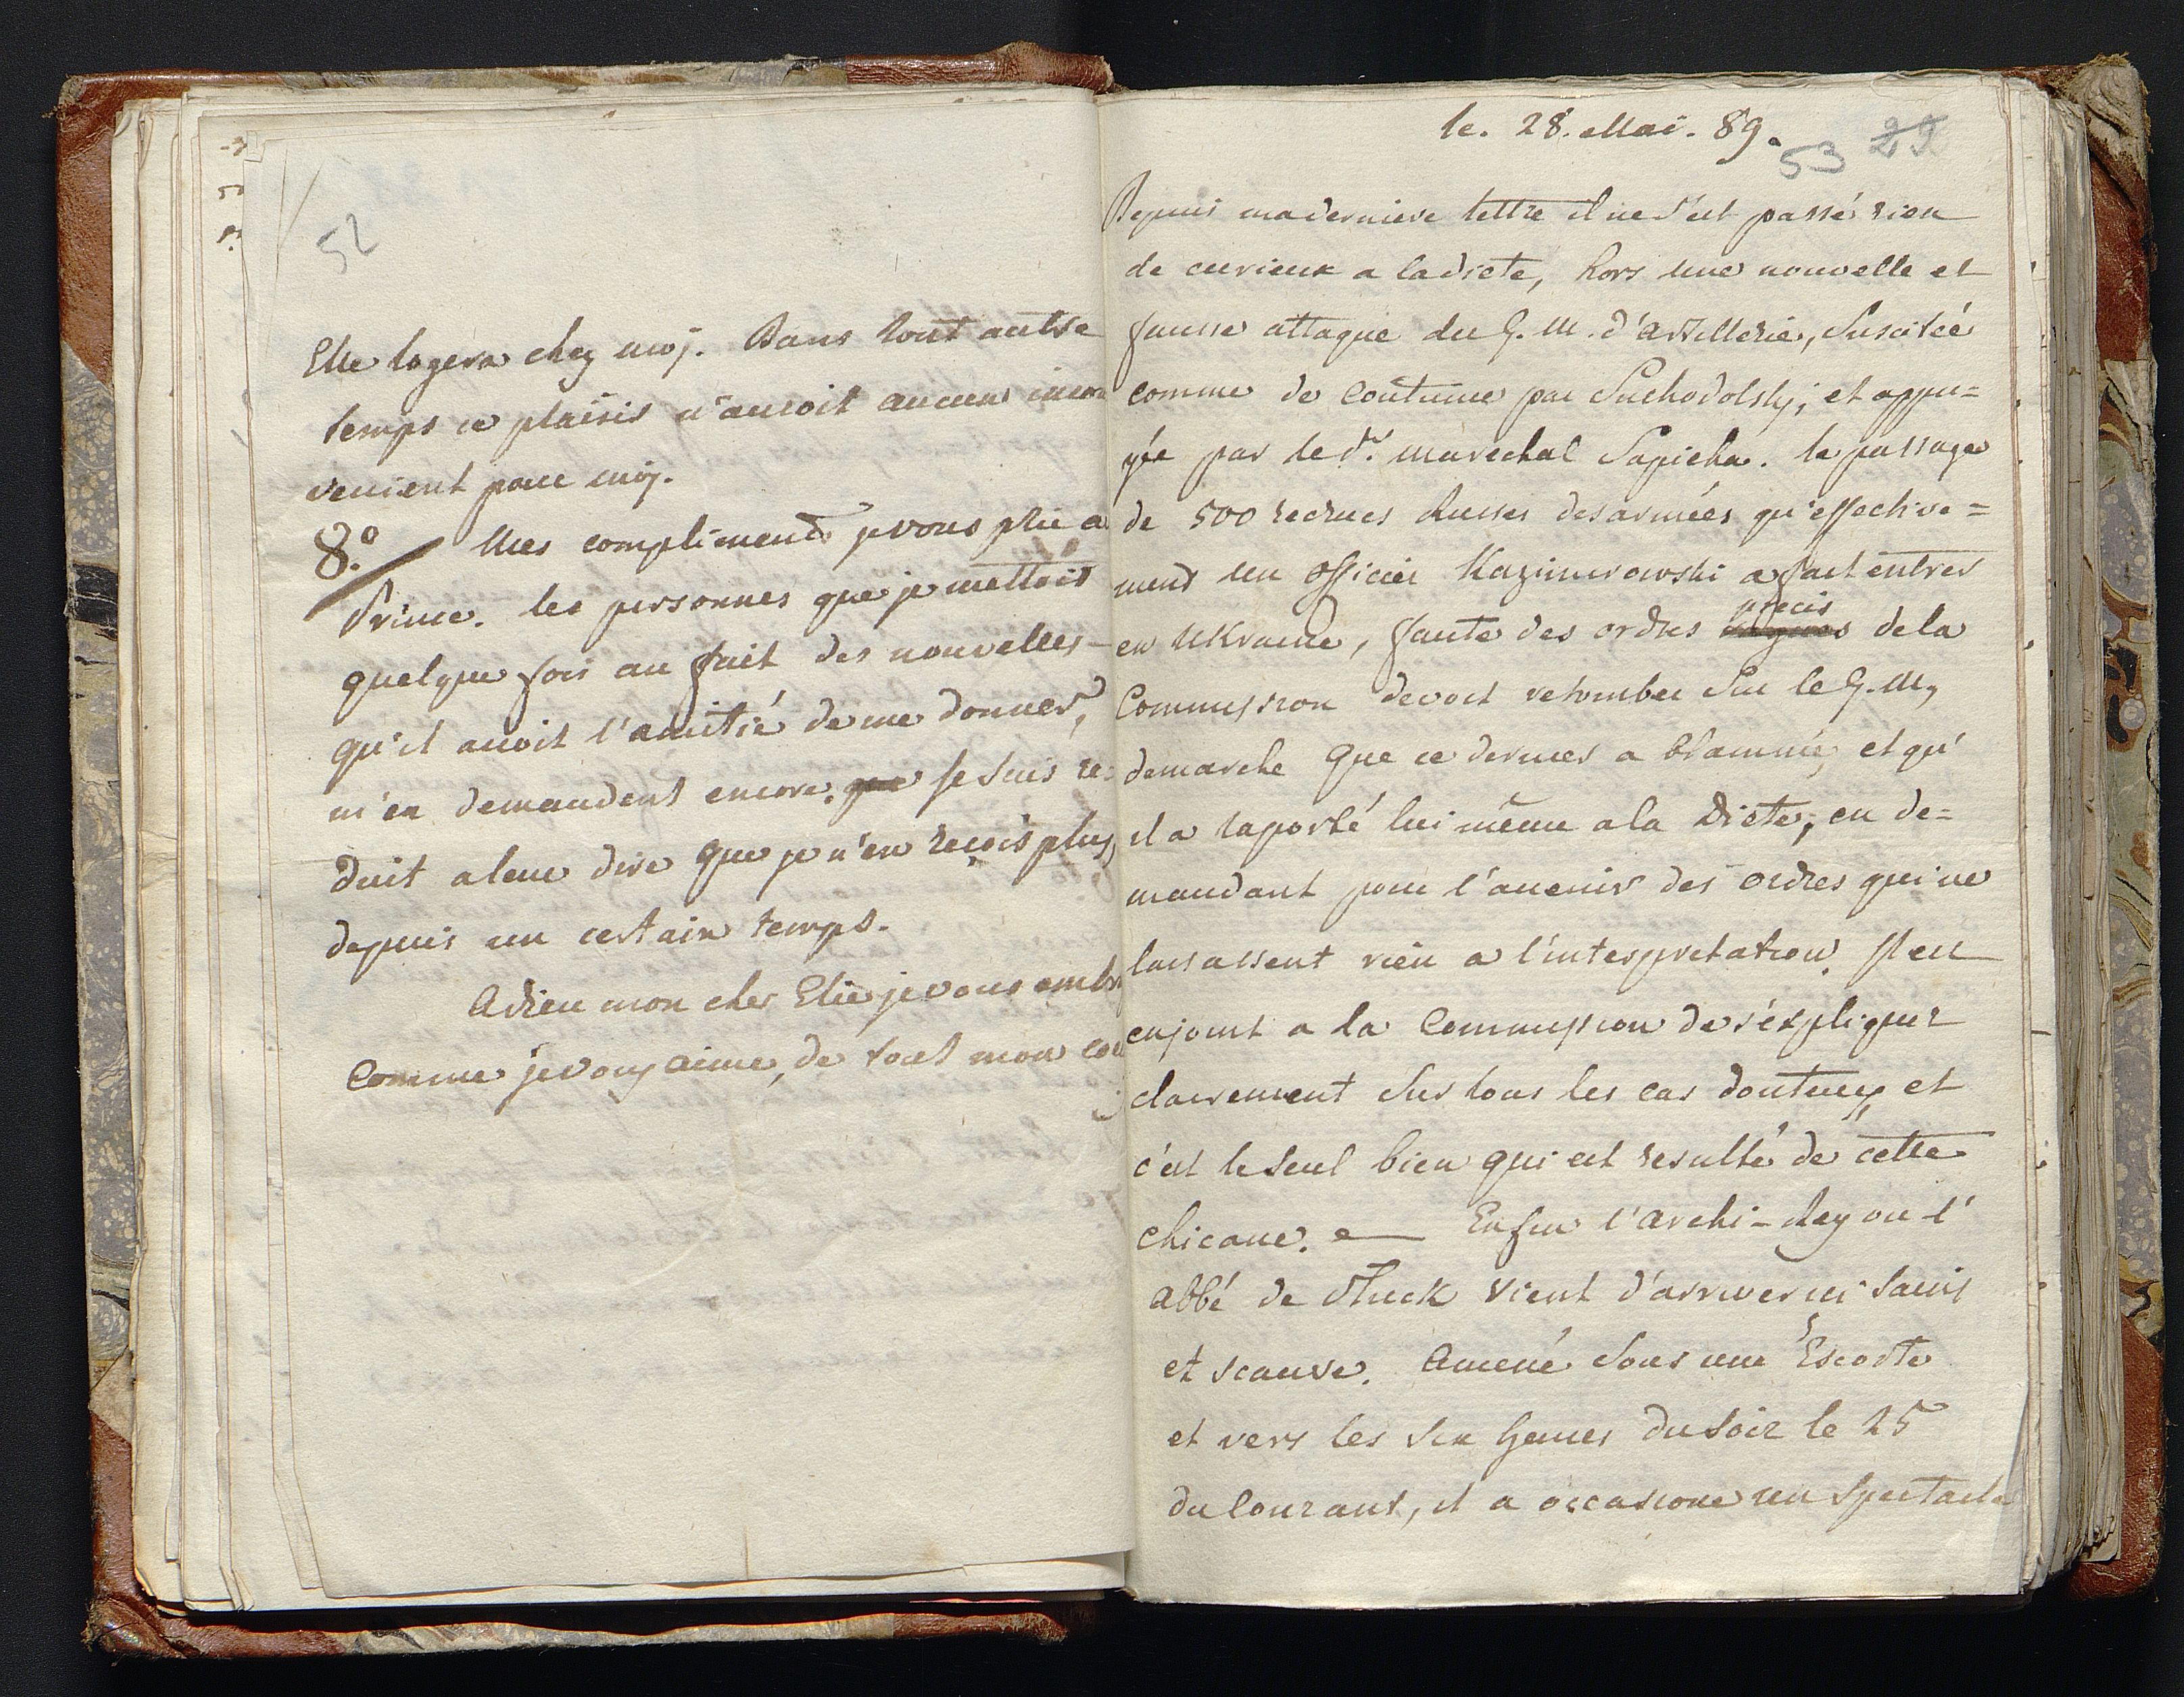 52
Elle logera chez moj. Dans tout autre
temps ce plaisir n'auroit aucun incon
venient pour moj.
8.° Mes compliments je vous prie a
Prince. les personnes que je mettois
quelque fois au fait des nouvelles
qu'il avoit l'amitié de me donner,
m'en demandent encore. que Je suis re=
duit a leur dire que je n'en reçois plus,
depuis un certain temps.
Adieu mon cher Elie je vous embr
comme je vous aime, de tout mon coe
le. 28. Mai. 89.
53 29
Depuis ma derniere lettre il ne s'est passé rien
de curieux a la diete, hors une nouvelle et
fausse attaque du G. M. d'artillerie, suscitée
comme de coutume par Suchodolsky, et appu=
yée par le dr. marechal Sapieha. le passage
de 500 recrues Russes desarmées qu'effective=
ment un officier Kazimirowski a fait entrer
en Ukraine, faute des ordres precis de la
Commission devoit retomber sur le G. M,
demarche que ce dernier a blammée, et qu'
il a raporté lui même a la Diete, en de=
mandant pour l'avenir des ordres qui ne
laissassent rien a l'interpretation. Il est
enjoint a la Commission de s'expliquer
clairement sur tous les cas douteux, et
c'est le seul bien qui est resulté de cette
chicane. — Enfin l'archi- ou l'
abbé de Sluck vient d'arriver ici sain
et scauve. Amené sous une Escorte
et vers les six heures du soir le 25
du courant, il a occasioné un spectacle